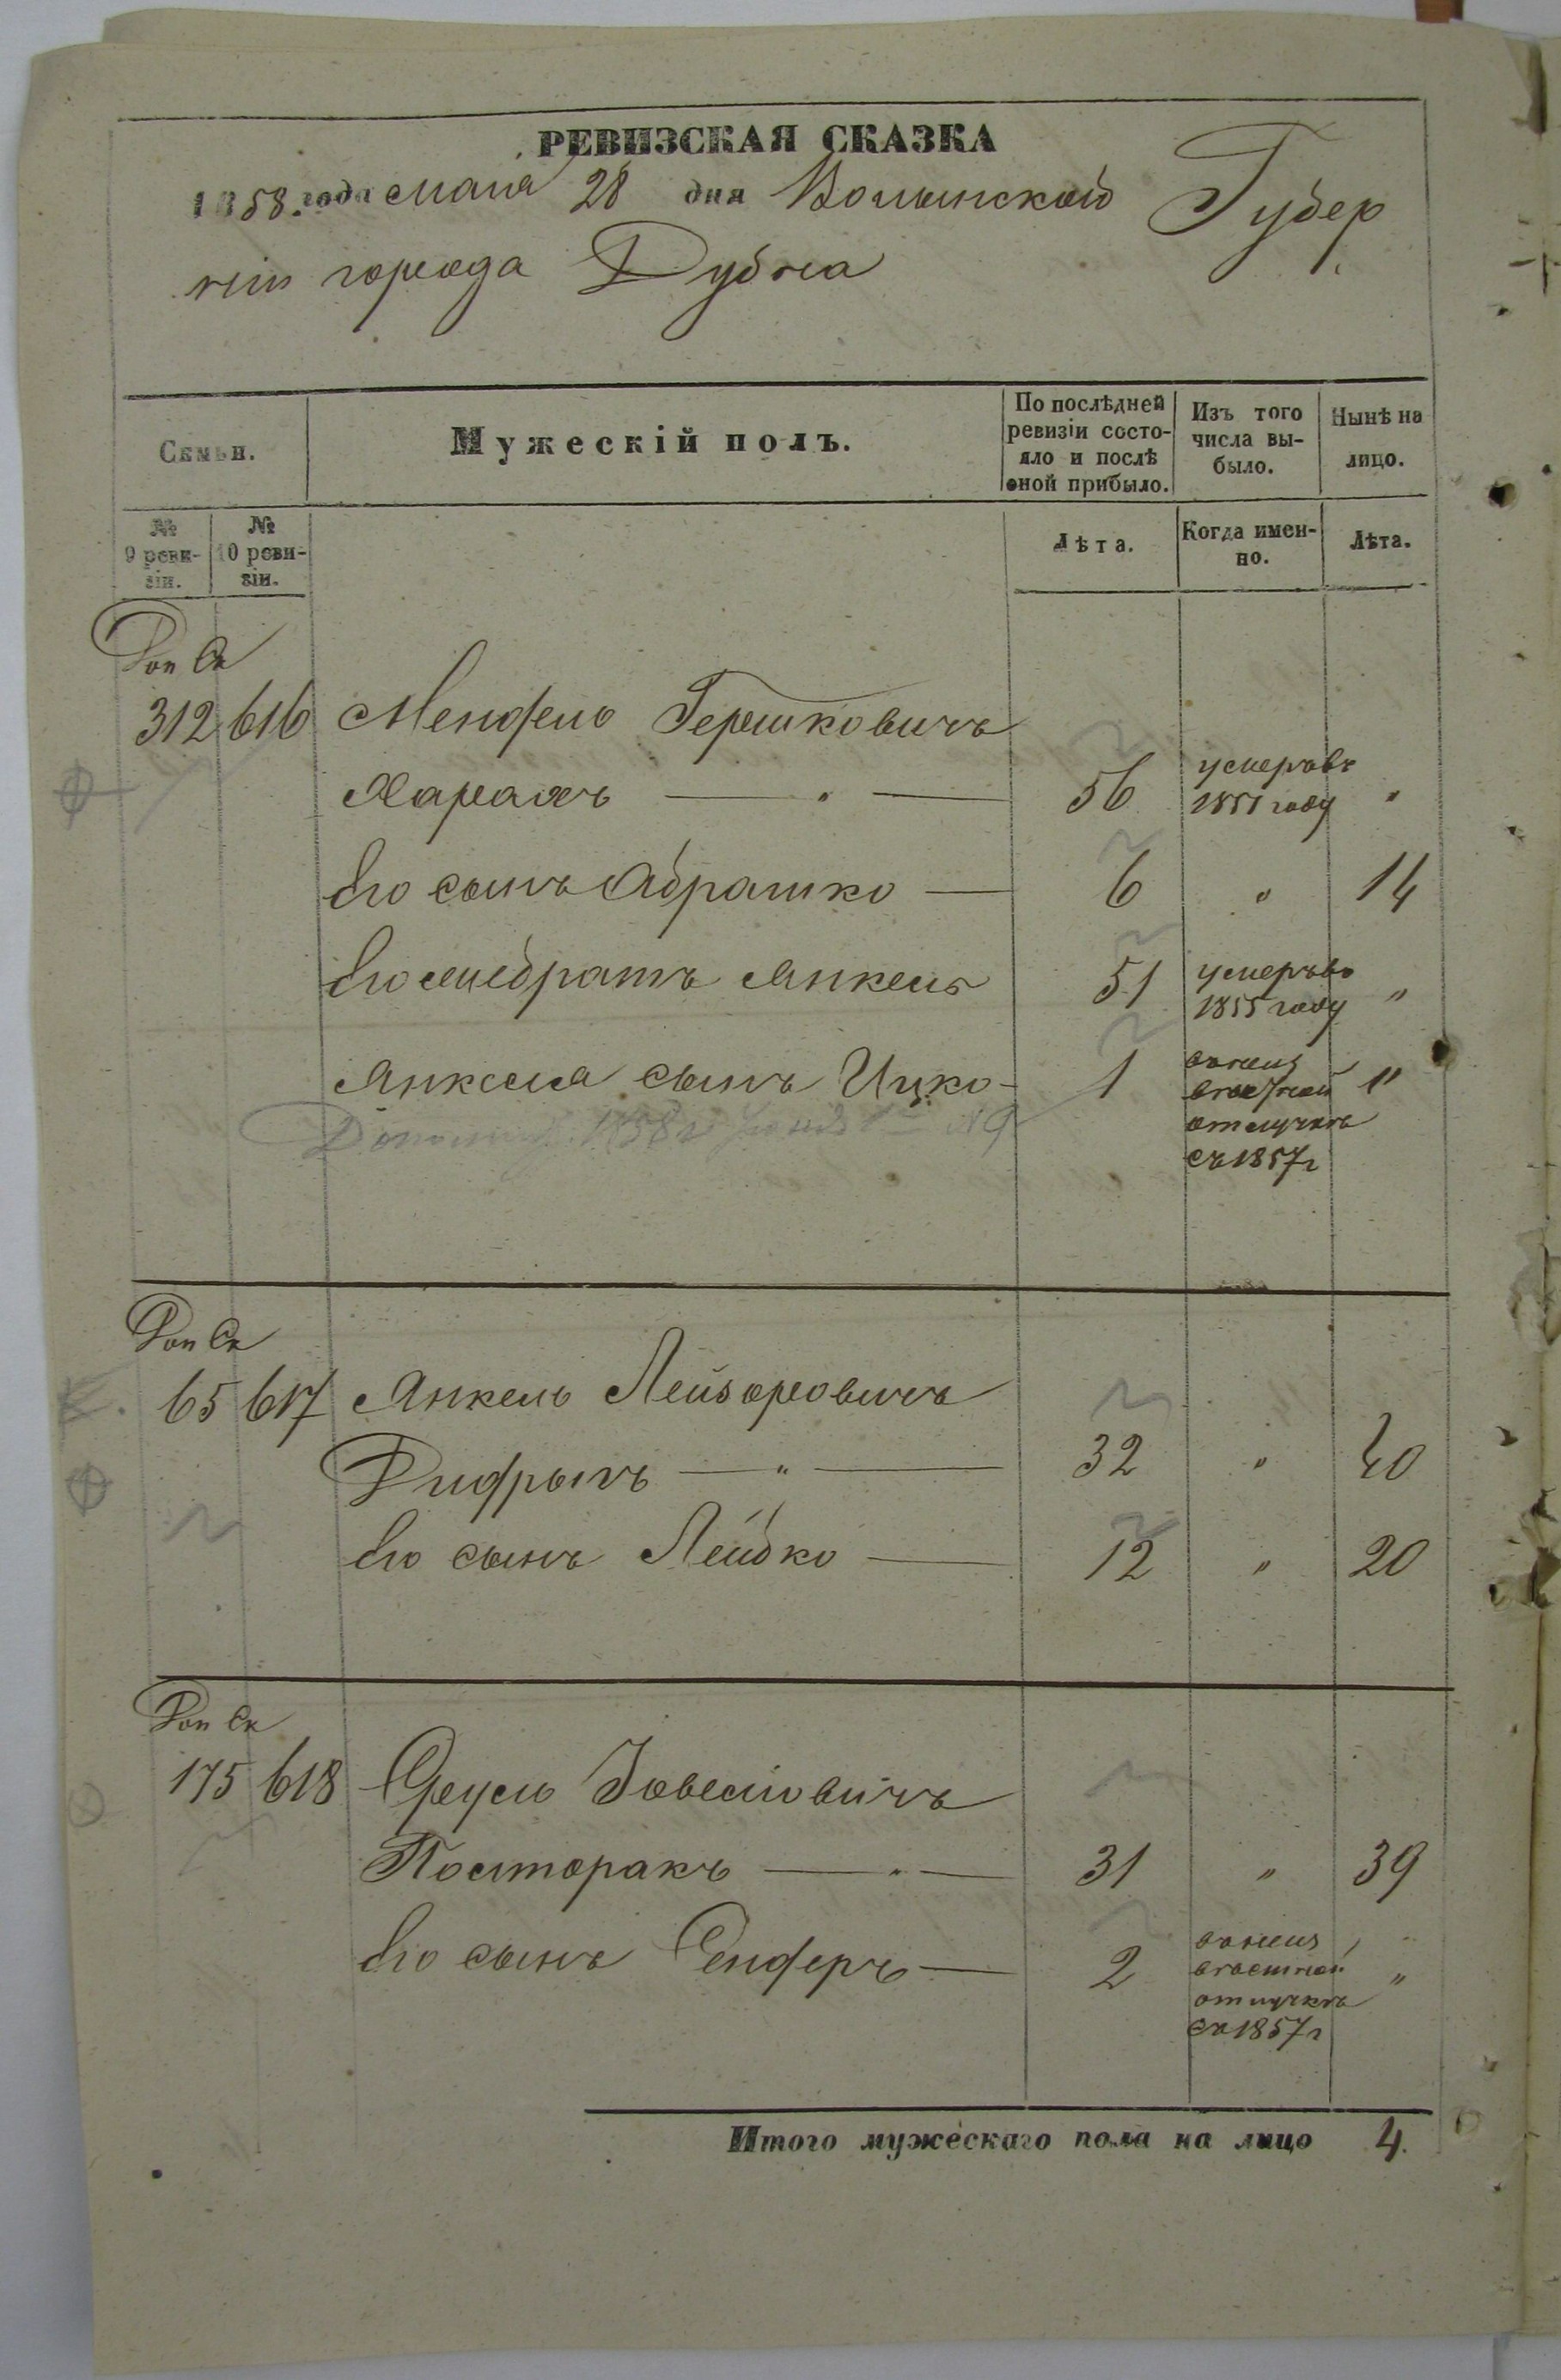 РЕВИЗСКАЯ СКАЗКА
1858 года Мая 28 дня Волынской Губер
ніи города Дубна
Семьи.
Мужескій полъ.
По послѣдней ревизіи состо-
яло и послѣ оной прибыло.
Изъ того числа вы-
было.
Нынѣ на лицо.
№ 9 реви-
зіи.
№ 10 реви-
зіи.
Лѣта.
Когда имен-
но.
Лѣта.
Доп Ск
312 616 Мендель Гершковичъ
56 умеръ въ 1851 году "
Его сынъ Абрашко — 6 " 14
Его братъ Янкель 51 умеръ въ 1855 году "
Янкеля сынъ Ицко - 1 "
отлучкѣ
съ 1857 г
Доп Ск
65 617 Янкель Лейзоровичъ
— " — 32 " 40
Его сынъ Лейбко — 12 " 20
Доп Ск
175 618
Посторакъ — " — 31 " 39
Его сынъ Сендеръ — 2 "
отлучкѣ
съ 1857 г
Итого мужескаго пола на лицо 4.